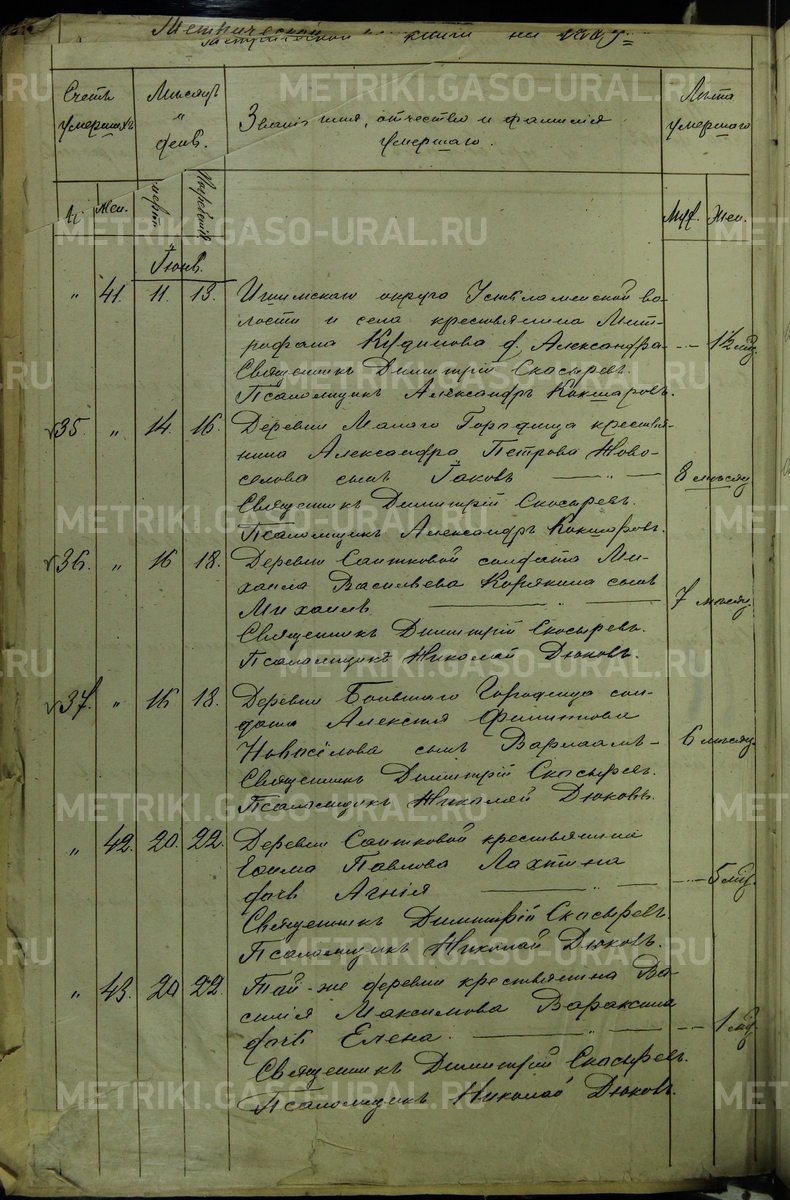 Метрической книги на
Счетъ умершихъ
Мѣсяцъ и день.
Званіе имя, отчество и фамилія умершаго.
Лѣта умершаго
Жен.
Погребенія
Муж.
Жен.
METRIKI.GASO-URAL.RU
Іюнь.
" 41. 11. 13. Ишимскаго округа Устьламенской во-
лости и села крестьянина Мит-
рофана Кудинова д. Александра
Священникъ Димитрій Скосыревъ.
Псаломщикъ Александръ Кокшаровъ.
35. " 14. 16. Деревни Малаго Городища крестья-
нина Александра Петрова Ново-
селова сынъ Іаковъ 8 мѣсяц.
Священникъ Димитрій Скосыревъ.
Псаломщикъ Александръ Кокшаровъ.
36. " 16 18. Деревни Сатковой солдата Ми-
хаила Васильева Корякина сынъ
Михаилъ 7 мѣсяц.
Священникъ Димитрій Скосыревъ.
Псаломщикъ Николай Дюковъ.
37. " 16 18. Деревни Большаго Городища сол-
дата Алексія Филиппова
Новосёлова сынъ Варлаамъ 6 мѣсяц.
Священникъ Димитрій Скосыревъ.
Псаломщикъ Николай Дюковъ.
" 42. 20. 22. Деревни Сатковой крестьянина
Павлова Лахтина
дочь Агнія 5 мѣс.
Священникъ Димитрій Скосыревъ.
Псаломщикъ Николай Дюковъ.
" 43. 20 22. Той-же деревни крестьянина Ва-
силія Максимова Вараксина
дочь Елена. 1 мѣс.
Священникъ Димитрій Скосыревъ.
Псаломщикъ Николай Дюковъ.